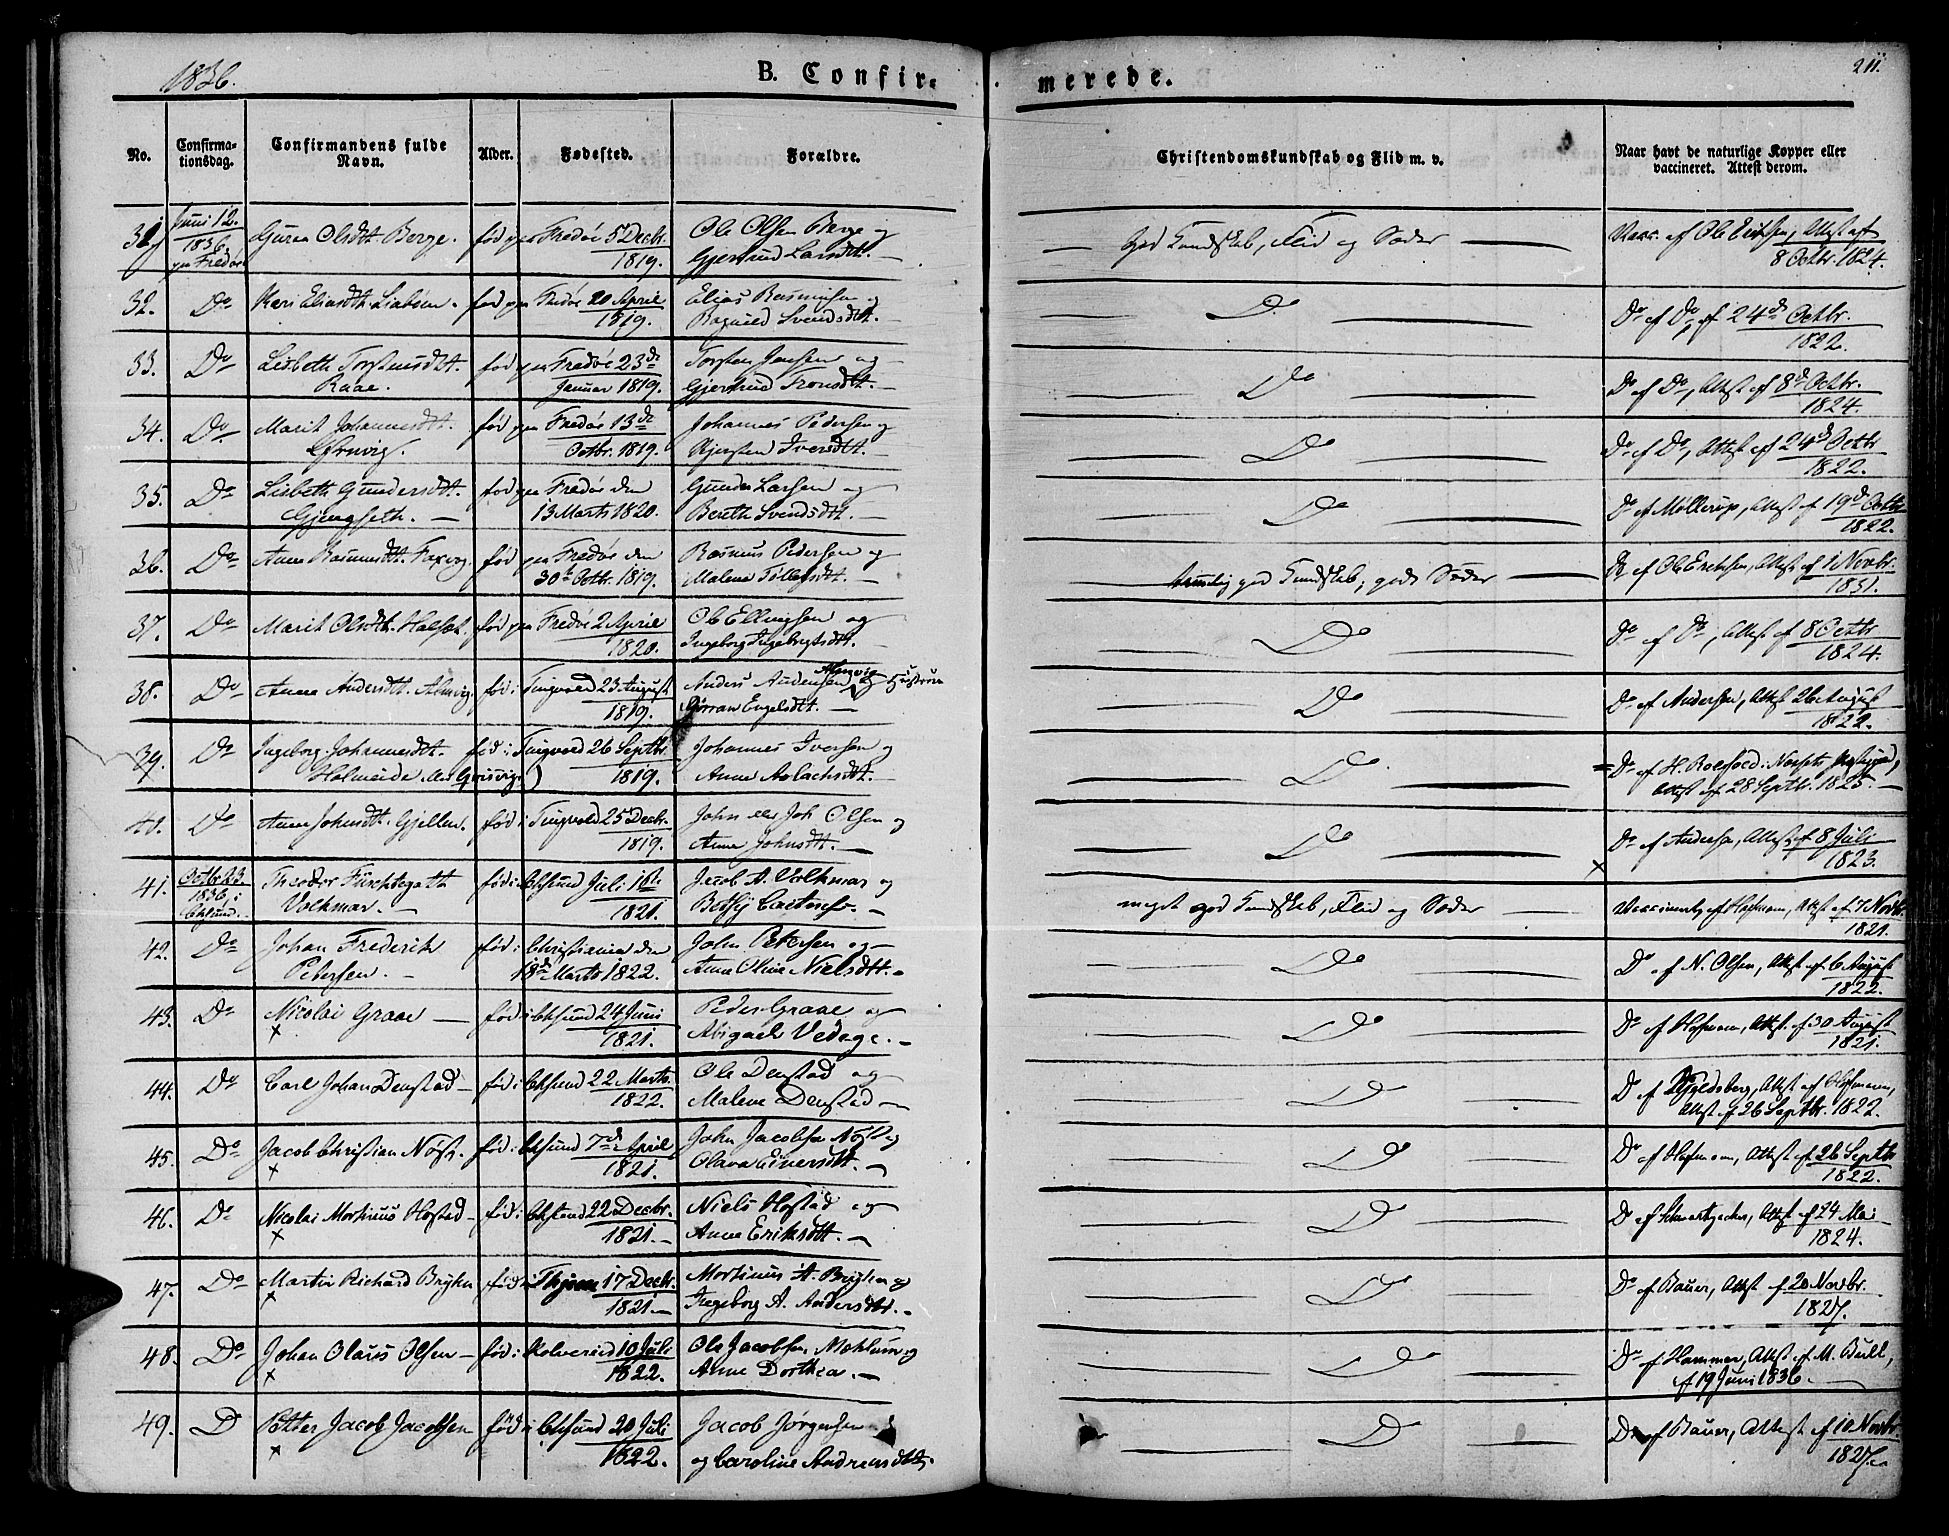 1836.
B. Confir-
merede.
211.
No.
Confirma-
tionsdag.
Confirmandens fulde
Navn.
Alder.
Fødested.
Forældre.
Christendomskundskab og Flid m. v.
Naar havt de naturlige Kopper eller
vaccineret. Attest derom.
31 Juni 12. 1836. paa Fredøe Guren Olsdtt. Berge. fød paa Fredøe 5 Decbr. 1819. Ole Olsen Berge og Gjertrud Larsdtt. God Kundskab, Flid og Sæder Vacc. af Ole Eriksen, Attest af 8 Octbr. 1824.
32. Do Kari Eliasdtt. fød paa Fredøe 20 April 1819. Elias Rasmusen og Ragnild Svendsdtt. Do Do af Do, af 24d Octbr. 1822.
33. Do Lisbeth Torstensdtt. Raae. fød paa Fredøe 23de Januar 1819. Torsten Jensen og Gjertrud Tronsdtt. Do Do af Do, Attest af 8d Octbr. 1824.
34. Do Marit Johannesdtt. fød paa Fredøe 13de Octbr. 1819. Johannes Pedersen og Kjersten Iversdtt. Do Do af Do, Attest af 24d Octbr 1822.
35. Do Lisbeth Gundersdtt. Gjengseth. fød paa Fredøe den 13 Marts 1820. Gunder Larsen og Bereth Svendsdtt. Do Do af Møllerup, Attest af 19d Octbr 1822.
36. Do Anne Rasmusdtt. Faxvog. fød paa Fredøe den 30te Octbr. 1819. Rasmus Pedersen og Malena Tollefsdtt. temmelig god Kundskab, gode Sæder Do af Ole Eriksen, Attest af 1 Novbr. 1831.
37. Do Marit Olsdtt. Halset. fød paa Fredøe 2 April 1820. Ole Ellingsen og Ingeborg Ingebrigtsdtt. Do Do af Do, Attest af 8 Octbr 1824.
38. Do Anne Andersdtt. Almvig. fød i Tingvold 23 August 1819. Anders Andersen Almvig og Hustrue Engelsdtt. Do Do af Andersen, Attest 26 August 1822.
39. Do Ingeborg Johannesdtt. Holmeide, eller Grisvig) fød i Tingvold 26 Septbr. 1819. Johannes Iversen og Anne Aslachsdtt. Do Do af H. Attest af 28 Septbr. 1825.
40. Do Anne Johnsdtt. Gjellen. fød i Tingvold 25 Decbr. 1819. John eller Joh Olsen og Anne Johnsdtt. Do Do af Andersen, Attest af 8 Juli 1823.
41. Octbr 23. 1836, i Chsund. Theodor Fürchtegoth Volkmar. fød i Chsund Juli 1ste 1821. Jacob A. Volkmar og Betsy meget god Kundskab, Flid og Sæder Vaccineret af Hofmann, Attest af 7 Novbr. 1821.
42. Do Johan Frederik Petersen. fød i Christiania den 18de Marts 1822. John Petersen og Anne Oline Nielsdtt. Do Do af N. Olsen, Attest af 6 August 1822.
43. Do Nicolai Graae fød i Chsund 24 Juni 1821. Peder Graae og Abigael Vedege. Do Do af Hofmann, Attest af 30 August 1821.
44. Do Carl Johan Denstad fød i Chsund 22 Marts 1822. Ole Denstad og Malene Denstad Do Do af Attest af Hofmann, Attest af 26 Septbr. 1822.
45. Do Jacob Christian Nøst. fød i Chsund 7de April 1821. John Jacobsen Nøst og Olava Einersdtt. Do Do af Hofmann, Attest af 26 Septbr 1822.
46. Do Nicolai Mortinus Hostad fød i Chsund 22 Decbr. 1821. Niels Hostad og Anne Eriksdtt. Do Do af Attest af 24 Mai 1824.
47. Do Martin Richard Bryhn fød i 17 Decbr. 1821. Mortinus A. Bryhn og Ingeborg A. Andersdtt. Do Do af Bauer, Attest af 20 Novbr. 1827.
48. Do Johan Olaus Olsen fød i Kolvereid 10 Juli 1822. Ole Jacobsen Mæhlum og Anne Dorthea. Do Do af Hammer, Attest af M. Bull, af 19 Juni 1836.
49. D Petter Jacob Jacobsen fød i Chsund 20 Juli 1822. Jacob Jørgensen og Caroline Andreasdtt. D Do af Bauer, Attest af 10 Novbr 1827.